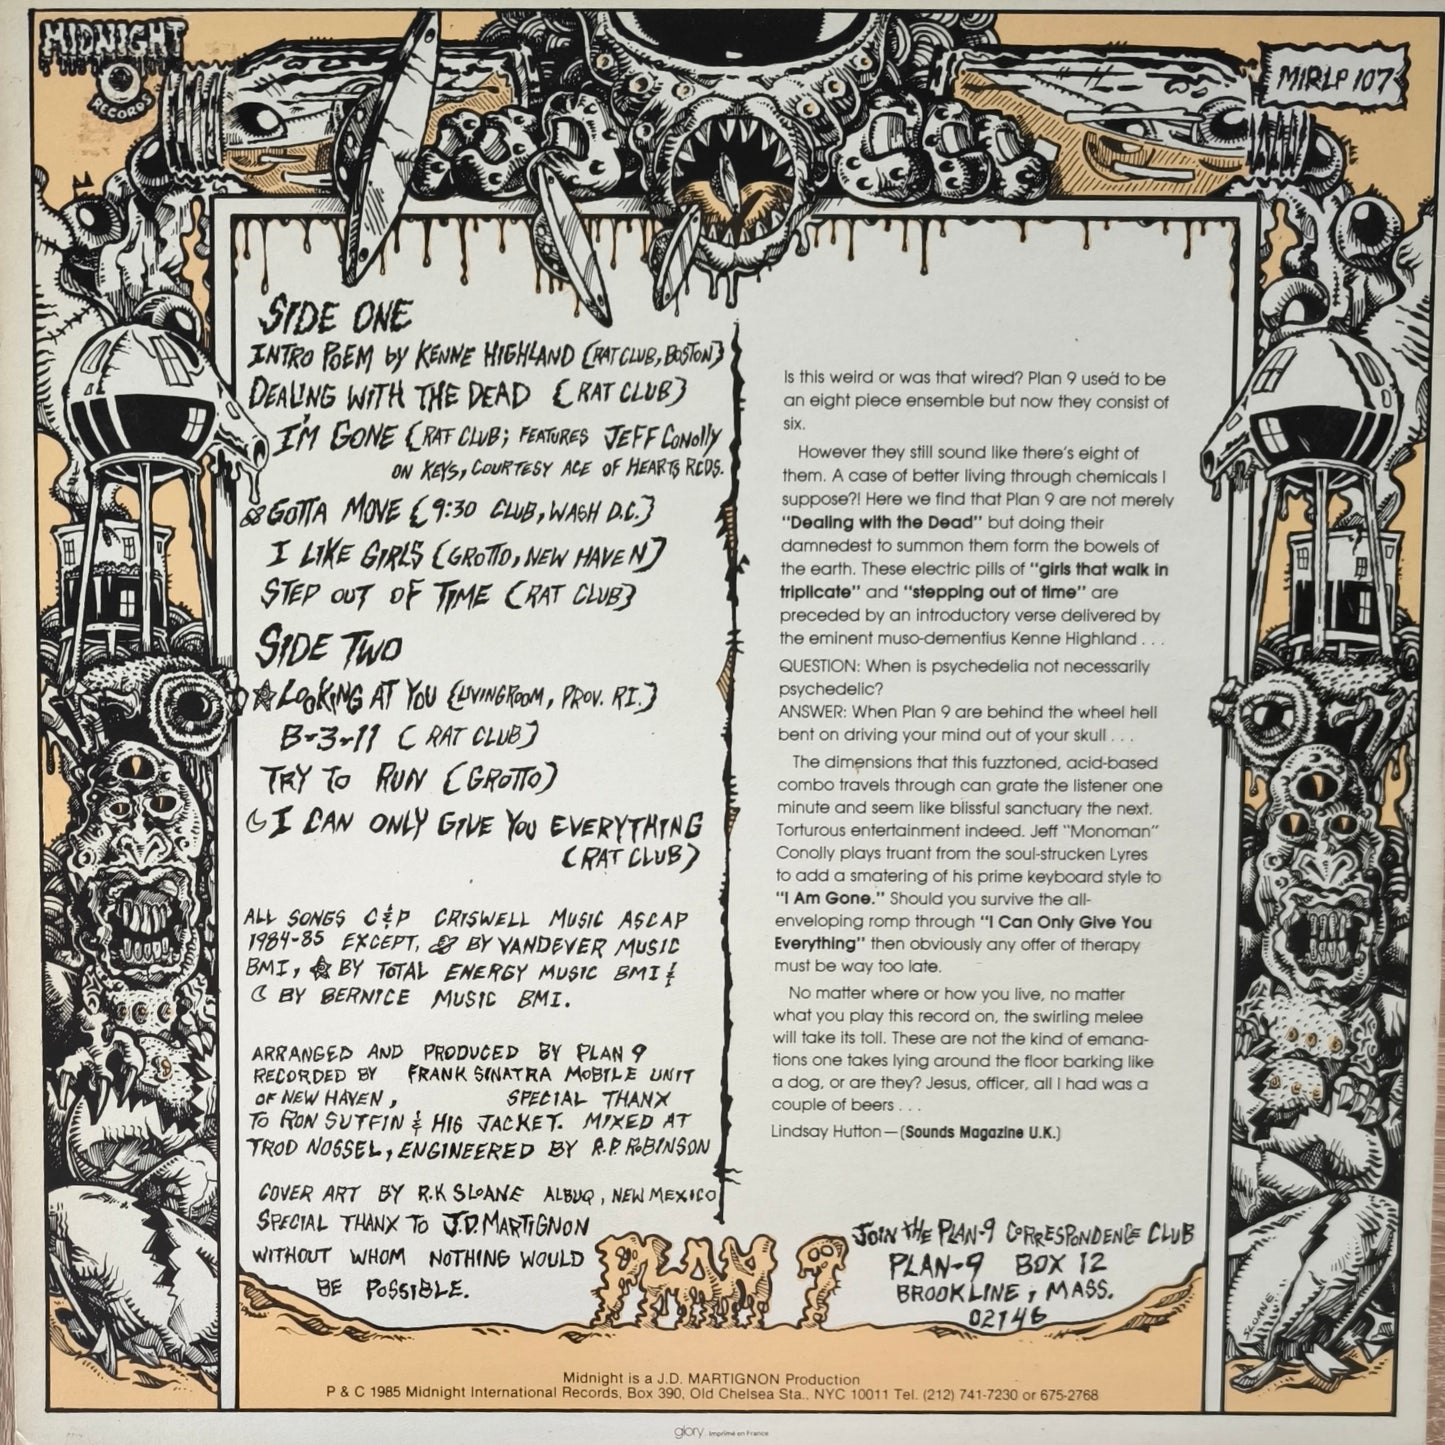 MIDNIGHT
RECORDS
MIRLP 107
SIDE ONE
INTRO POEM by KENNE HIGHLAND (RAT CLUB, BOSTON)
DEALING WITH THE DEAD (RAT CLUB)
I'M GONE (RAT CLUB; FEATURES JEFF CONOLLY
ON KEYS, COURTESY ACE OF HEARTS RCDS.
GOTTA MOVE (9:30 CLUB, WASH D.C.)
I LIKE GIRLS (GROTTO, NEW HAVEN)
STEP OUT OF TIME (RAT CLUB)
SIDE TWO
LOOKING AT YOU (LIVINGROOM, PROV. RI.)
B-3-11 (RAT CLUB)
TRY TO RUN (GROTTO)
I CAN ONLY GIVE YOU EVERYTHING
(RAT CLUB)
ALL SONGS C&P CRISWELL MUSIC ASCAP
1984-85 EXCEPT, BY VANDEVER MUSIC
BMI, BY TOTAL ENERGY MUSIC BMI &
BY BERNICE MUSIC BMI.
ARRANGED AND PRODUCED BY PLAN 9
RECORDED BY FRANK SINATRA MOBILE UNIT
OF NEW HAVEN, SPECIAL THANX
TO RON SUTFIN & HIS JACKET. MIXED AT
TROD NOSSEL, ENGINEERED BY R.P. ROBINSON
COVER ART BY R.K SLOANE ALBUQ, NEW MEXICO
SPECIAL THANX TO J.D. MARTIGNON
WITHOUT WHOM NOTHING WOULD
BE POSSIBLE.
Is this weird or was that wired? Plan 9 used to be
an eight piece ensemble but now they consist of
six.
However they still sound like there's eight of
them. A case of better living through chemicals I
suppose?! Here we find that Plan 9 are not merely
"Dealing with the Dead" but doing their
damnedest to summon them form the bowels of
the earth. These electric pills of "girls that walk in
triplicate" and "stepping out of time" are
preceded by an introductory verse delivered by
the eminent muso-dementius Kenne Highland . . .
QUESTION: When is psychedelia not necessarily
psychedelic?
ANSWER: When Plan 9 are behind the wheel hell
bent on driving your mind out of your skull . . .
The dimensions that this fuzztoned, acid-based
combo travels through can grate the listener one
minute and seem like blissful sanctuary the next.
Torturous entertainment indeed. Jeff "Monoman"
Conolly plays truant from the soul-strucken Lyres
to add a smatering of his prime keyboard style to
"I Am Gone." Should you survive the all-
enveloping romp through "I Can Only Give You
Everything" then obviously any offer of therapy
must be way too late.
No matter where or how you live, no matter
what you play this record on, the swirling melee
will take its toll. These are not the kind of emana-
tions one takes lying around the floor barking like
a dog, or are they? Jesus, officer, all I had was a
couple of beers . . .
Lindsay Hutton—(Sounds Magazine U.K.)
PLAN 9
JOIN THE PLAN-9 CORRESPONDENCE CLUB
PLAN-9 BOX 12
BROOKLINE, MASS.
02146
SLOANE
Midnight is a J.D. MARTIGNON Production
P & C 1985 Midnight International Records, Box 390, Old Chelsea Sta., NYC 10011 Tel. (212) 741-7230 or 675-2768
glory Imprimé en France